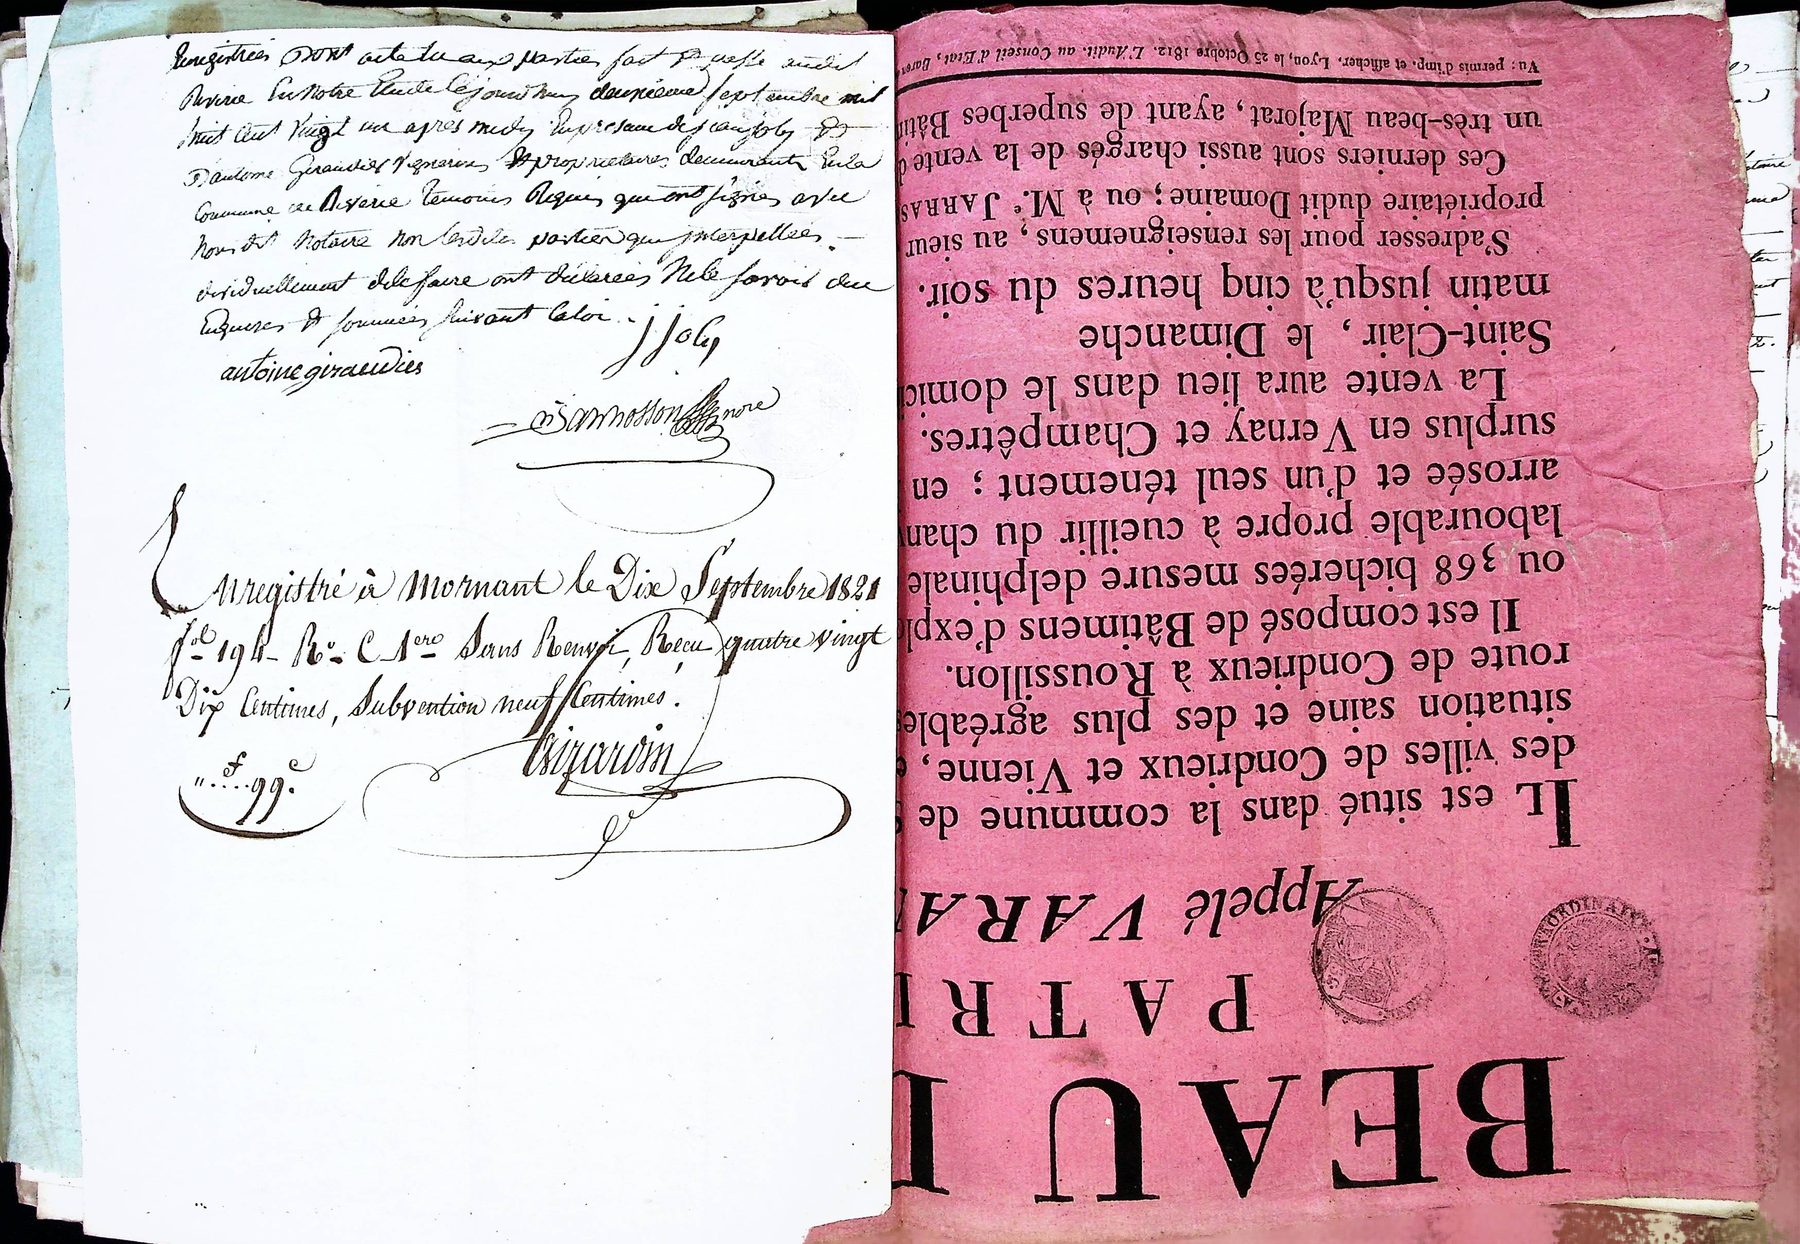 Enregistrées Dont acte lu aux parties fait & passé audit
Riverie En Notre Etude Cejourdhuy deuxieme septembre mil
huit cent vingt un apres midy En presence de jean joly &
D'antoine Giraudies vignerons & proprietaires demeurants En la
Commune de Riverie Temoins Requis qui ont signés avec
Nous dit Notaire non lesdites parties qui interpellées
individuellement dele faire ont déclarées Ne le savoir de ce
Enquises & sommées suivant la loi.
j joly
antoine giraudies
nore
Enregistré à Mornant le Dix Septembre 1821
fol 194 Ro. C. 1ere Sans Renvoi, Reçu quatre vingt
Dix Centimes, Subvention neuf Centimes.
Girardin
" f 99 c
BEAU
PATRI
Appelé VARA
IL est situé dans la commune de
des villes de Condrieux et Vienne,
situation saine et des plus agréables
route de Condrieux à Roussillon.
Il est composé de Bâtimens d'explo
ou 368 bicherées mesure delphinale
labourable propre à cueillir du chanv
arrosée et d'un seul ténement ; en
surplus en Vernay et Champêtres.
La vente aura lieu dans le domici
Saint-Clair, le Dimanche
matin jusqu'à cinq heures du soir.
S'adresser pour les renseignemens, au sieur
propriétaire dudit Domaine ; ou à M.e JARRAS
Ces derniers sont aussi chargés de la vente d
un très-beau Majorat, ayant de superbes Bâtim
Vu : permis d'imp. et afficher. Lyon, le 25 Octobre 1812. L'Audit. au Conseil d'Etat, Baron